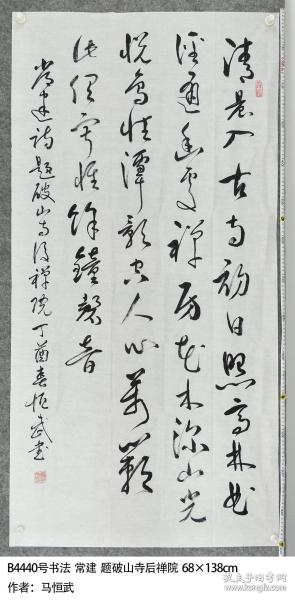 清晨入古寺初日照高林曲
径通幽处禅房花木深山光
悦鸟性潭影空人心万籁
此俱寂惟余钟磬音
常建诗题破山寺后禅院丁酉春恒武书
B4440号书法 常建 题破山寺后禅院 68×138cm
作者：马恒武